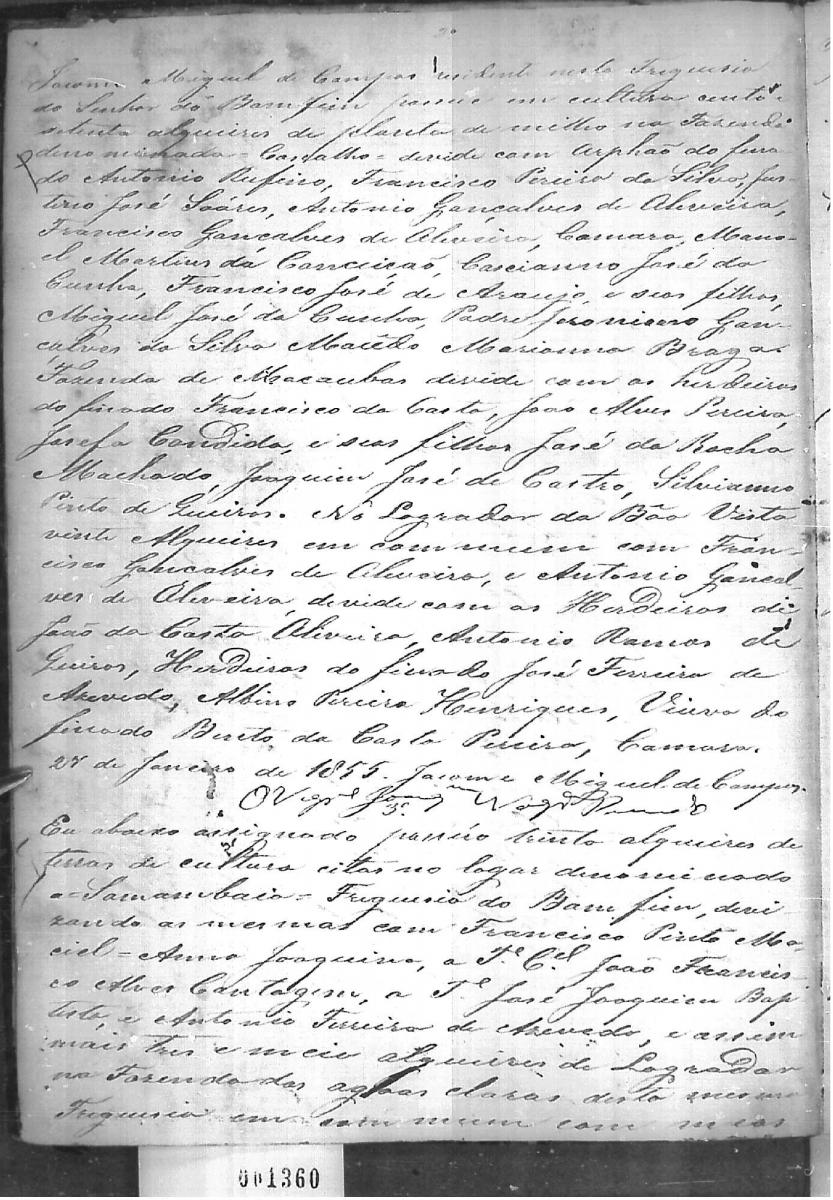 2º
Jacome Miguel de Campos residente nesta Freguesia
do Senhor do Bam fim possue em cultura cento e
setenta alqueires de planta de milho na Fazenda
denominada = Carvalho = devide com Orphão do fina
do Antonio Rufino, Francisco Pereira da Silva,
José Soáres, Antonio Gonçalves de Oliveira,
Francisco Gonçalves de Oliveira, Camara, Mano-
el Martins da Conceiçaõ, Cascianno José da
Cunha, Francisco José de Araujo, e seos filhos,
Miguel José da Cunha, Padre Jeronimo Gon-
çalves da Silva Macêdo Marianna Braga.
Fazenda de Macaubas devide com os herdeiros
do finado Francisco da Costa, João Alves Pereira,
Josefa Candida, e seos filhos José da Rocha
Machado, Joaquim José de Castro, Silvianno
Pinto de Queiros. Nô Logrador da Bôa Vista
vinte Alqueires em commum com Fran-
cisco Gonçalves de Oliveira, e Antonio Gonçal-
ves de Oliveira, devide com os Herdeiros de
João da Costa Oliveira, Antonio Ramos de
Queiros, Herdeiros do finado José Ferreira de
Azevedo, Albino Pereira Henriques, Viuva do
finado Bento da Costa Pereira, Camara.
27 de Janeiro de 1855. Jacome Miguel de Campos.
O Vigrº
Eu abaixo assignado possúo trinta alqueires de
terras de cultura citas no logar denominado
a = Samambaia = Freguesia do Bam fim, devi-
zando as mesmas com Francisco Pinto Ma-
ciel = Anna Joaquina, o Tᵉ Cᵉˡ João Francis-
co Alves Contagem, o Tᵉ José Joaquim Bap
tista, e Antonio Ferreira de Azevedo, e assim
mais tres e meio alqueires de Logrador
na Fazenda das agoas claras desta mesma
Freguesia em commum com meos
001360